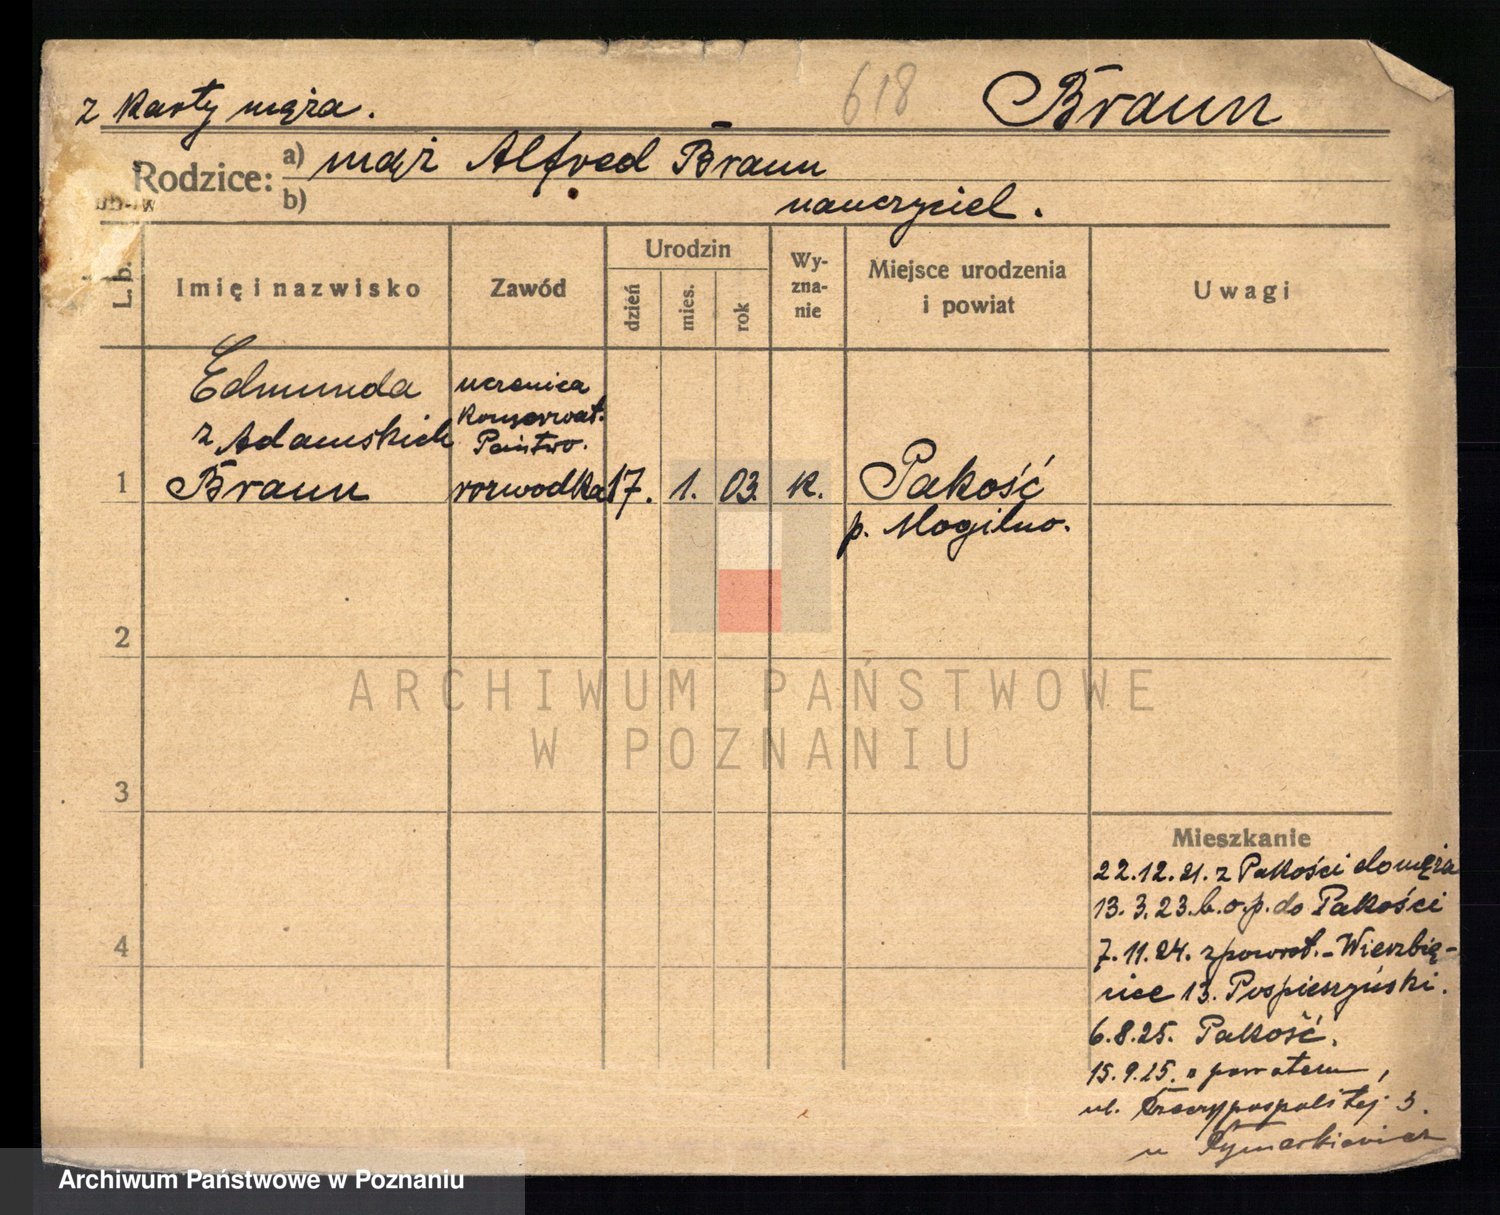 618
Braun
z karty męża.
Rodzice:
a) mąż Alfred Braun
b) nauczyciel.
L. b.
Imię i nazwisko
Zawód
Urodzin
dzień
mies.
rok
Wy-
zna-
nie
Miejsce urodzenia
i powiat
Uwagi
Edmunda
z Adamskich
1 Braun
uczenica
Konserwat.
Państwo.
rozwodka
17. 1. 03. k. Pakość
p. Mogilno.
2
3
4
ARCHIWUM PAŃSTWOWE
W POZNANIU
Mieszkanie
22.12.21. z Pakości do męża
13.3.23. b.o.p. do Pakości
7.11.24. z powrot. - Wierzbię-
cice 13. Pospieszyński.
6.8.25. Pakość.
15.9.25. z powrotem,
ul. Rzeczypospolitej 3.
u Rymarkiewicz
Archiwum Państwowe w Poznaniu